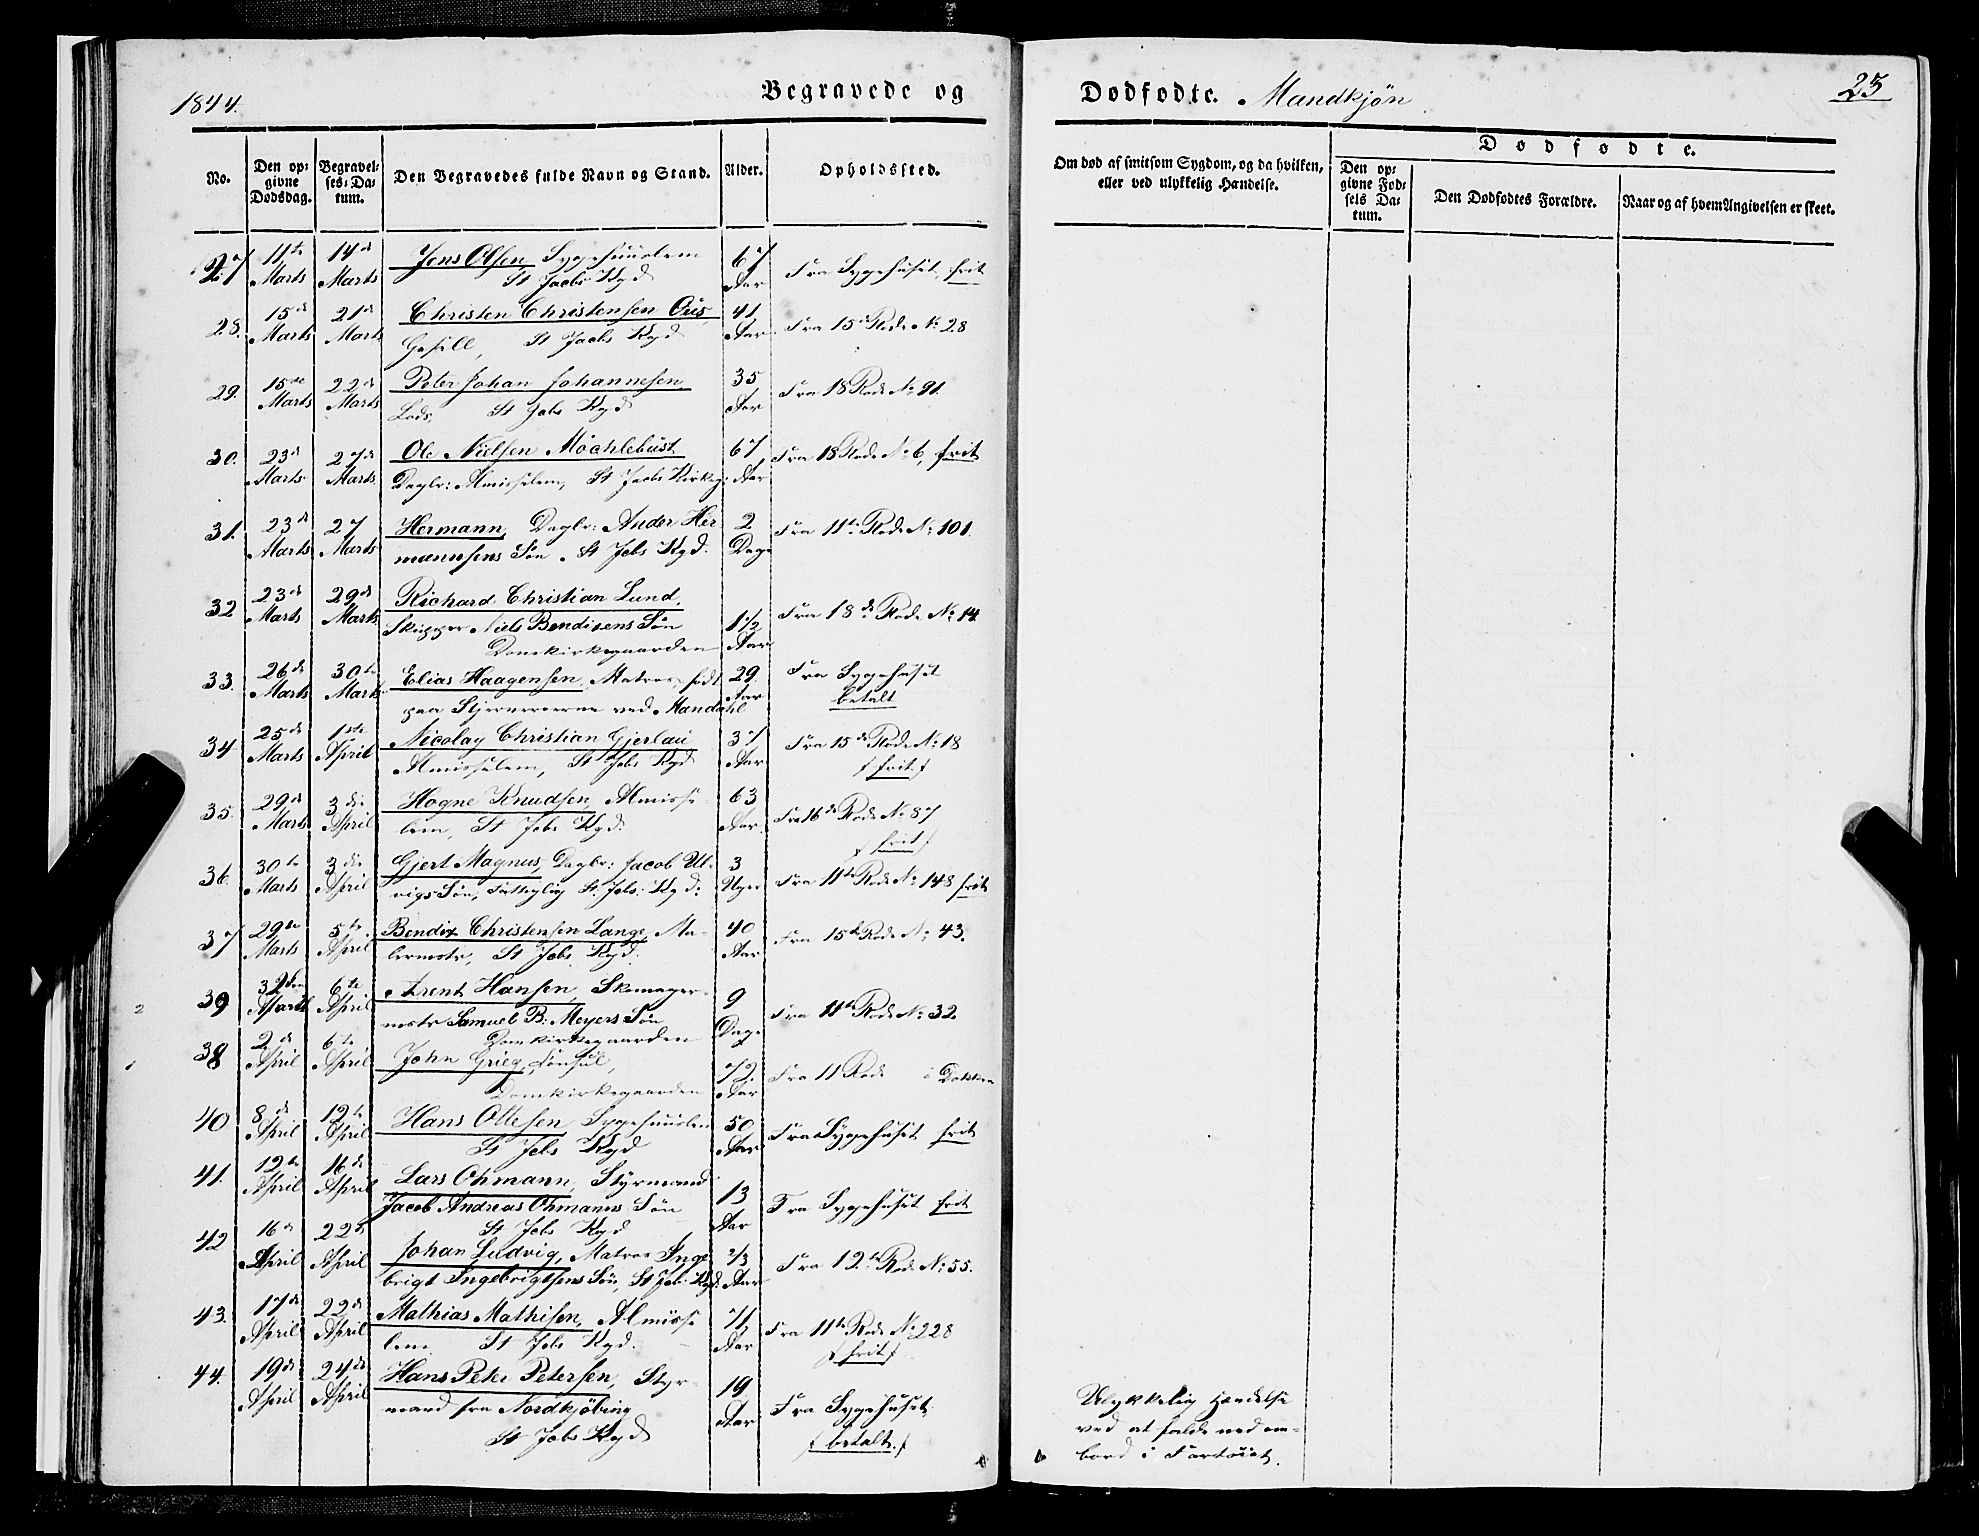 1844.
Begravede og
Dødfødte. Mandkjøn
23
No.
Den opgivne Dødsdag.
Begravelses-Datum.
Den Begravedes fulde Navn og Stand.
Alder.
Opholdssted.
Om død af smitsom Sygdom, og da hvilken,
eller ved ulykkelig Hændelse.
Dødfødte.
Den opgivne Fødsels Datum.
Den Dødfødtes Forældre.
Naar og af hvem Angivelsen er skeet.
27 11te Marts 14de Marts Jens Olsen Sygehuuslem 67 Aar Fra Sygehuset, frit
St Jacobs Kgd
28. 15de Marts 21de Marts Christen Christensen Ous, 41 Aar Fra 15de Rode No 28
St Jacbs Kgd
29. 15de Marts 22de Marts Peter Johan Johannesen, 35 Aar Fra 18 Rode No 91.
Lods, St Jcbs Kgd
30. 23de Marts 27de Marts Ole Nielsen Møchlebust 67 Aar Fra 18 Rode No 6, frit
Daglr: Almisselem, St Jacbs Kirkeg:
31. 23de Marts 27 Marts Hermann, Daglr: Ander Her 2 Dage Fra 11te Rode No 101.
mannsens Søn, St Jcbs Kgd.
32 23de Marts 29de Marts Richard Christian Lund, 1 1/2 Aar Fra 18de Rode No 14
Skipper Niels Bendixens Søn
Domkirkegaarden
33. 26de Marts 30te Marts Elias Haagensen, Matros, født 29. Aar Fra Sygehuset
paa ved Mandahl betalt
34 25de Marts 1ste April Nicolay Christian Gjerlau 37 Aar Fra 15de Rode No 18
Almisselem, St Jcbs Kgd frit
35. 29de Marts 3die April Hogne Knudsen, Almisse 63 Aar. Fra 16de Rode No 87
lem, St Jcbs Kgd. frit
36. 30te Marts 3die April Gjert Magnus, Daglr: Jacob Ul- 3 Uger Fra 11te Rode No 148 frit
vigs Søn, Fattiglig St. Jcbs. Kgd:
37 29de Marts 5te April Bendix Christensen Lange, Ma- 40 Aar Fra 15de Rode No 43.
lermstr, St Jcbs Kgd.
2 39 Marts 6te April Arent Hansen, Skomager- 9 Dage Fra 11te Rode No 32.
mstr Samuel B: Meyers Søn
Domkirkegaarden
1 38 2de April 6te April John Grieg, Consul, 72 Aar Fra 11 Rode i Dokken
Domkirkegaarden
40 8de April 12te April Hans Ottesen Sygehuuslem 50 Aar Fra Sygehuset frit
St Jcbs Kgd
41. 12te April 16de April Lars Ohmann, Styrmand 13 Aar Fra Sygehuset frit
Jacob Andreas Ohmanns Søn
St Jcbs Kgd
42 16de April 22de April Johan Ludvig, Matros Inge 2/3 Aar Fra 12te Rode No 55.
brigt Ingebrigtsens Søn, St Jcbs Kgd:
43. 17de April 22de April Mathias Mathisen, Almisse 71 Aar Fra 11te Rode No 228
lem St Jcbs Kgd. frit
44. 19de April 24de April Hans Peter Petersen, Styr- 19 Aar Fra Sygehuset,
mand fra Nordkjøbing betalt.
St Jcbs Kgd
Ulykkelig Hændelse
ved at falde ned om-
bord i Fartøiet.